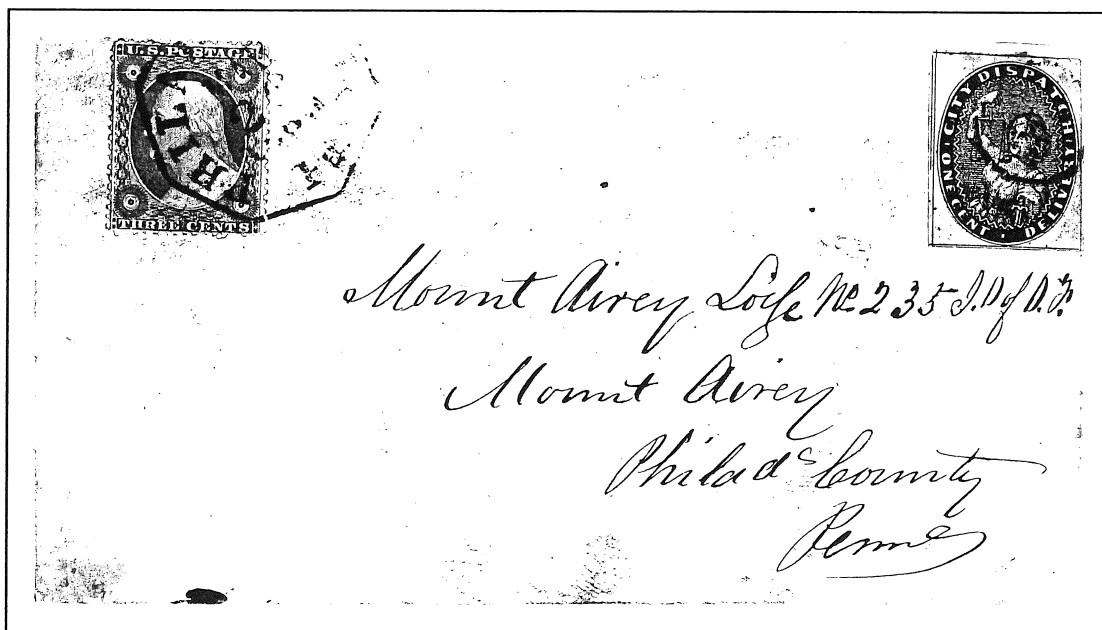 U.S. POSTAGE
THREE CENTS
CITY DISPATCH
ONE CENT. DELIVERY
Mount Airey Lodge No. 235 I.O of O.F.
Mount Airey
Philada County
Penna